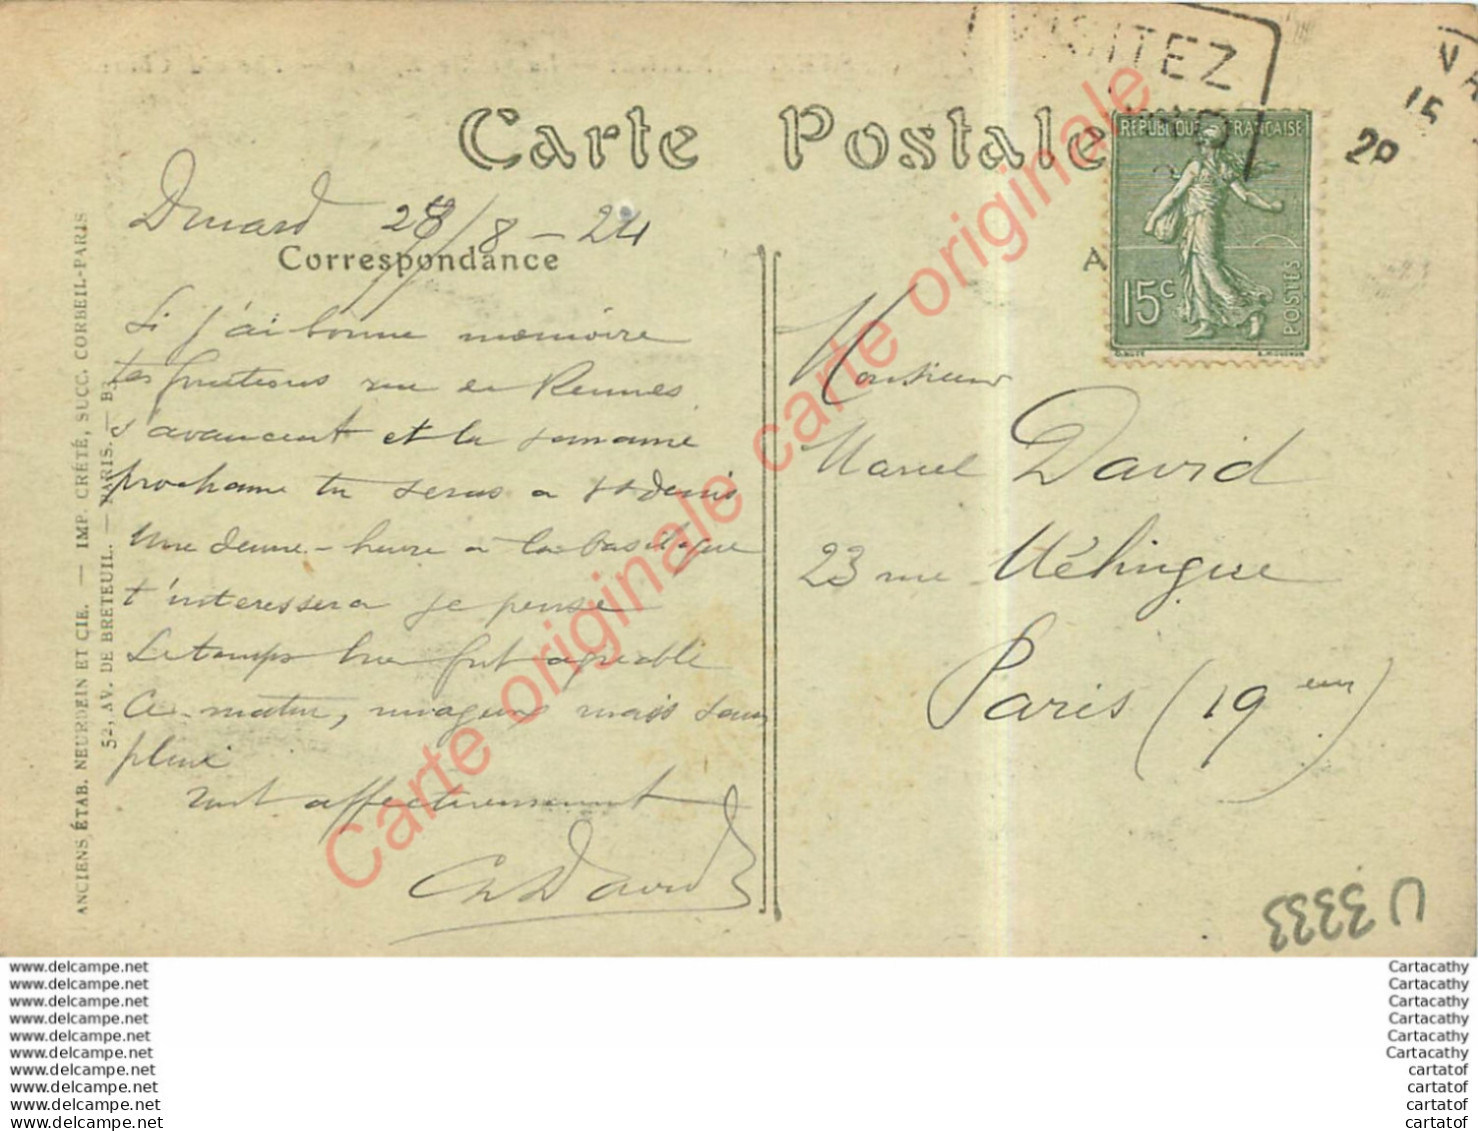 VISITEZ
Carte Postale
REPUBLIQUE FRANÇAISE
15c
POSTES
Dinard 28/8-24
Correspondance
Si j'ai bonne mémoire
tes fonctions rue de Rennes
s'avancent et la semaine
prochaine tu seras a St denis
Une demie-heure a la basilique
t'interessera je pense
Le temps hier fut agréable
Ce matin, nuageux mais sans
pluie
affectueusement
Ch David
Monsieur
Marcel David
23 rue Méhingue
Paris (19eme)
ANCIENS ÉTAB. NEURDEIN ET CIE. — IMP. CRÉTÉ, SUCC. CORBEIL-PARIS
52, AV. DE BRETEUIL. — PARIS. — B3
U 3333
Carte originale carte originale
www.delcampe.net
www.delcampe.net
www.delcampe.net
www.delcampe.net
www.delcampe.net
www.delcampe.net
www.delcampe.net
www.delcampe.net
www.delcampe.net
www.delcampe.net
Cartacathy
Cartacathy
Cartacathy
Cartacathy
Cartacathy
Cartacathy
cartatof
cartatof
cartatof
cartatof